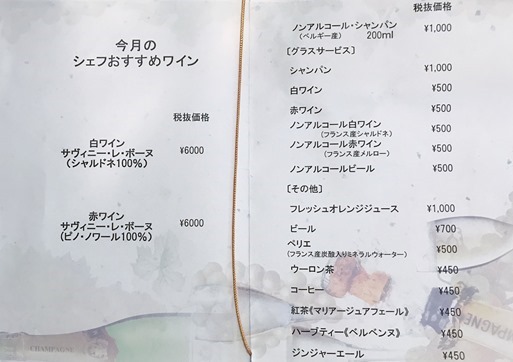 今月の
シェフおすすめワイン
税抜価格
白ワイン
サヴィニー・レ・ボーヌ ¥6000
(シャルドネ100%)
赤ワイン
サヴィニー・レ・ボーヌ ¥6000
(ピノ・ノワール100%)
税抜価格
ノンアルコール・シャンパン ¥1,000
(ベルギー産) 200ml
〔グラスサービス〕
シャンパン ¥1,000
白ワイン ¥500
赤ワイン ¥500
ノンアルコール白ワイン ¥500
(フランス産シャルドネ)
ノンアルコール赤ワイン ¥500
(フランス産メルロー)
ノンアルコールビール ¥500
〔その他〕
フレッシュオレンジジュース ¥1,000
ビール ¥700
ペリエ ¥500
(フランス産炭酸入りミネラルウォーター)
ウーロン茶 ¥450
コーヒー ¥450
紅茶《マリアージュアフェール》 ¥450
ハーブティー《ベルベンヌ》 ¥450
ジンジャーエール ¥450
CHAMPAGNE